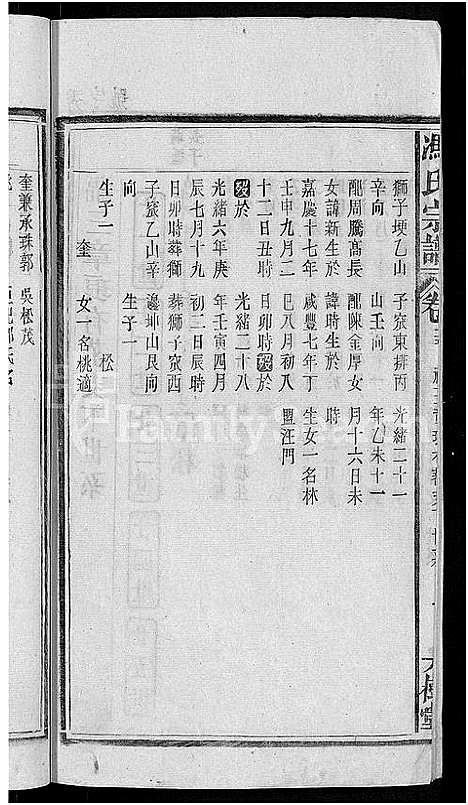 馮氏宗譜 卷
大樹堂
獅子埂乙山 子窾東排丙 光緒二十一
辛向 山壬向 年乙未十一
配周騰髙長 配陳金厚女 月十六日未
女諱新生於 諱時生於 時
嘉慶十七年 咸豐七年丁 生女一名林
壬申九月二 巳八月初八 盟汪門
十二日丑時 日卯時殁於
殁於 光緒二十八
光緒六年庚 年壬寅四月
辰七月十九 初二日辰時
日卯時葬獅 葬獅子窾西
子窾乙山辛 邊坤山艮向
向 生子一
生子一 松
奎 女一名桃適
奎兼承珠郭 吳松茂